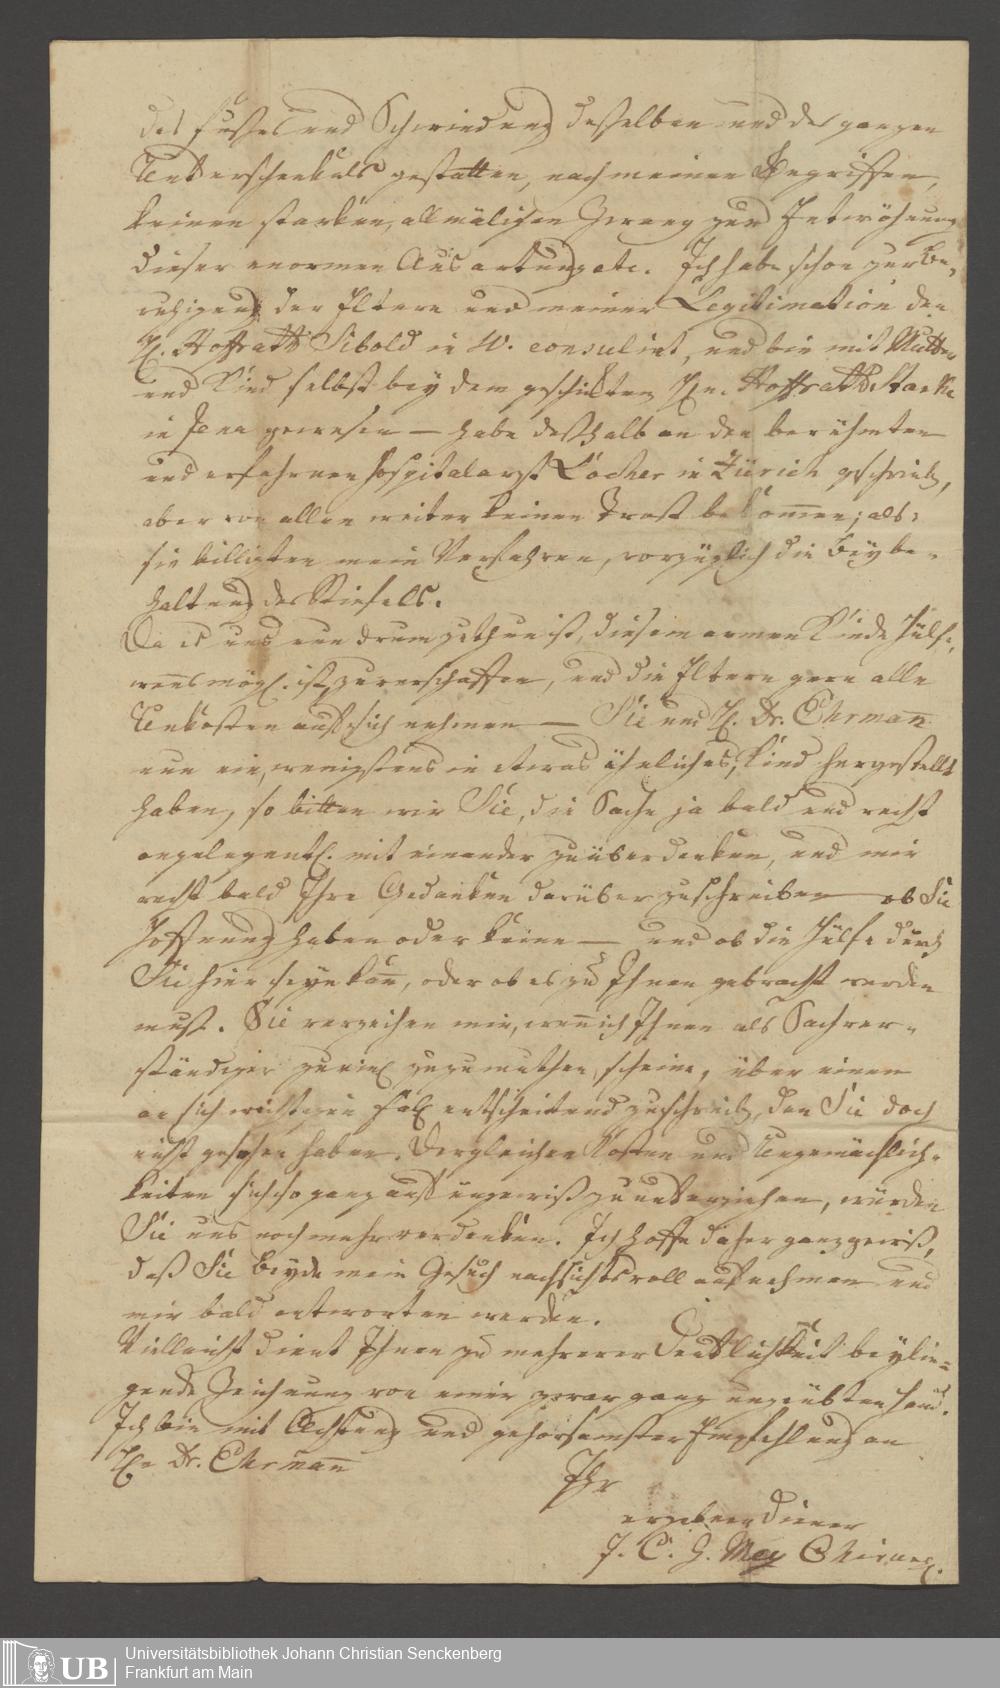 des Fußes und Schwindung desselben und des ganzen
Unterschenkels gestatten, nach meinen Begriffen,
keinen starken, allmäligen Zwang zur Entwöhnung
dieser enormen Ausartung etc. Ich habe schon zur Be-
ruhigung der Eltern und meiner Legitimation den
H. Hoffrath Sibold in W. consulirt, und bin mit Mutter
und Kind selbst bey dem geschickten Hrn. Hoffrath Starke
in Jena gewesen — habe deßhalb an den berühmten
und erfahrnen Hospitalarzt Locher in Zürich geschrieb.,
aber von allen weiter keinen Trost bekommen; als:
sie billigten mein Verfahren, vorzüglich die Beybe-
haltung des Stiefels.
Da es uns nun drum zuthun ist, diesem armen Kinde Hülfe,
wenns mögl. ist, zu verschaffen, und die Eltern gern alle
Unkosten auf sich nehmen — Sie und H. Dr. Ehrmann
nun ein, wenigstens in etwas ähnliches, Kind hergestellt
haben, so bitten wir Sie, die Sache ja bald und recht
angelegentl. mit einander zu überdenken, und mir
recht bald Ihre Gedanken darüber zu schreiben — ob Sie
Hoffnung haben oder keine — und ob die Hülfe durch
Sie hier seyn kan, oder ob es zu Ihnen gebracht werden
muß. Sie verzeihen mir, wenn ich Ihnen als Sachver-
ständiger zu viel zuzumuthen scheine, über einen
an sich wichtigen Fall entscheidend zu schreib., den Sie doch
nicht gesehen haben. Dergleichen Kosten und Ungemächlich-
keiten sich so ganz auf ungewiß zu unterziehen, würden
Sie uns noch mehr verdenken. Ich hoffe daher ganz gewiß,
daß Sie Beyde mein Gesuch nachsichtsvoll aufnehmen und
mir bald antworten werden.
Villeicht dient Ihnen zu mehrerer Deutlichkeit beylie-
gende Zeichnung von einer zwar ganz ungeübten Hand.
Ich bin mit Achtung und gehorsamster Empfehlung an
H. Dr. Ehrmann
Ihr
ergebner Diener
J. C. G. Mey Chirurg.
UB
Universitätsbibliothek Johann Christian Senckenberg
Frankfurt am Main